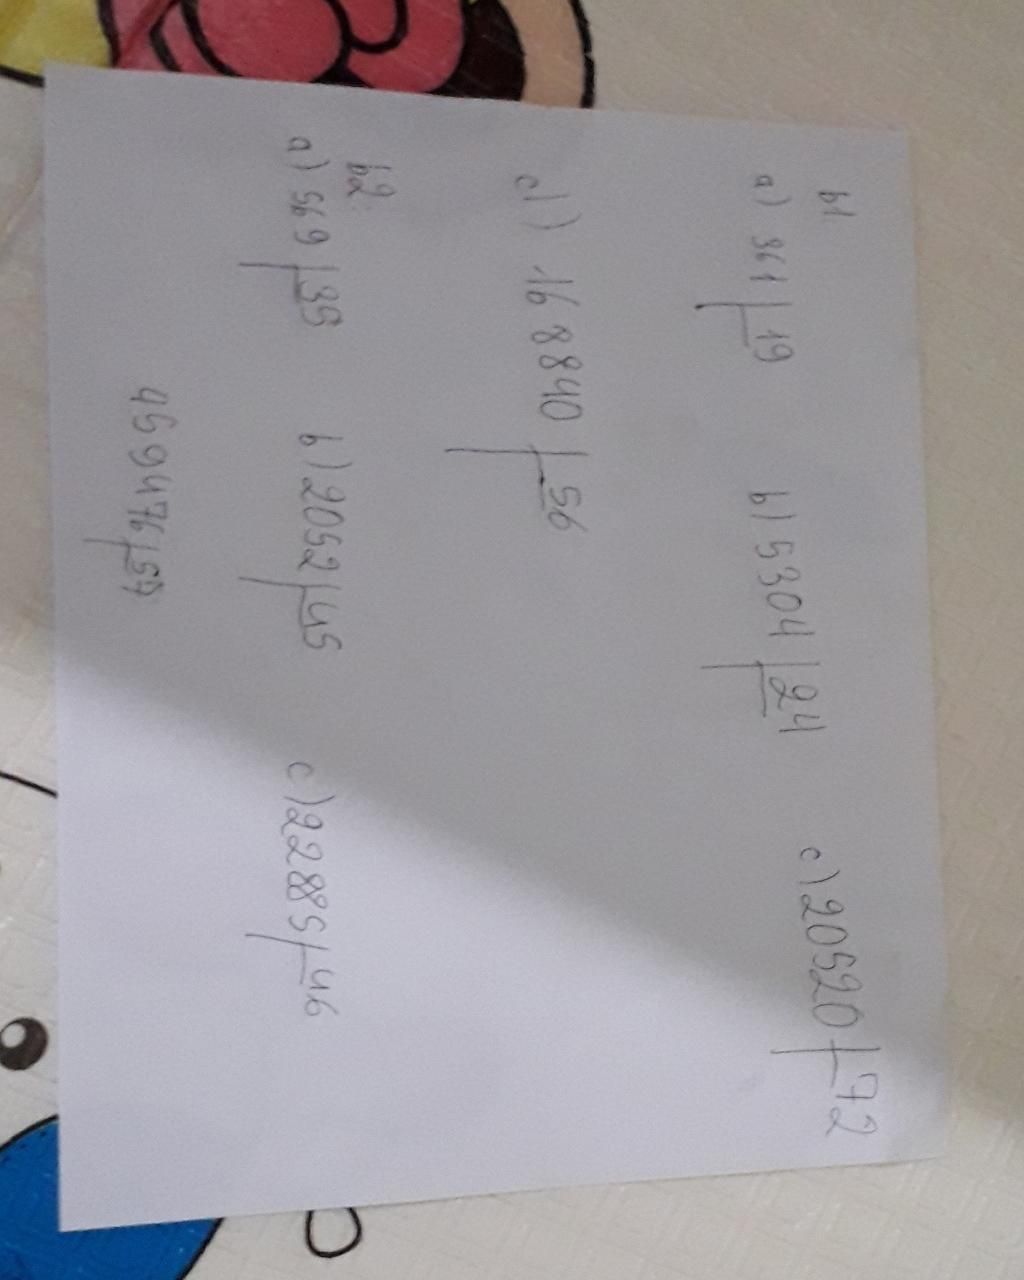 b1
a) 361 19 b) 5304 24 c) 20520 72
d) 16 8840 56
b2
a) 569 35 b) 2052 45 c) 22885 46
459476 57